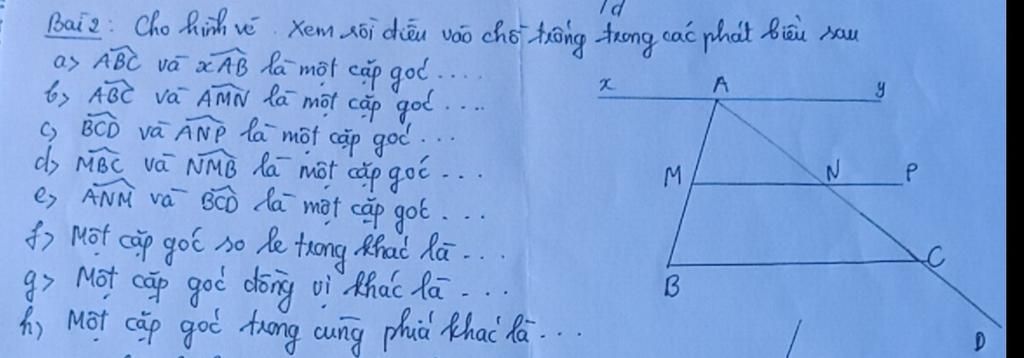 1d
Bài 2: Cho hình vẽ. Xem rồi điều vào chỗ trống trong các phát biểu sau
a> ABC và xAB là một cặp góc ....
b> ABC và AMN là một cặp góc ....
c> BCD và ANP là một cặp góc ...
d> MBC và NMB là một cặp góc ...
e> ANM và BCD là một cặp góc ...
f> Một cặp góc so le trong khác là ...
g> Một cặp góc đồng vị khác là ...
h) Một cặp góc trong cùng phía khác là ...
x A y
M N P
B C
D